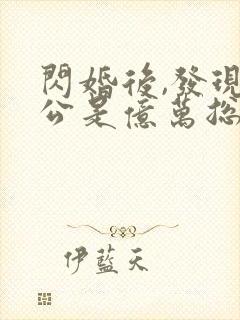 閃婚後,發現
公是億萬總
伊藍天